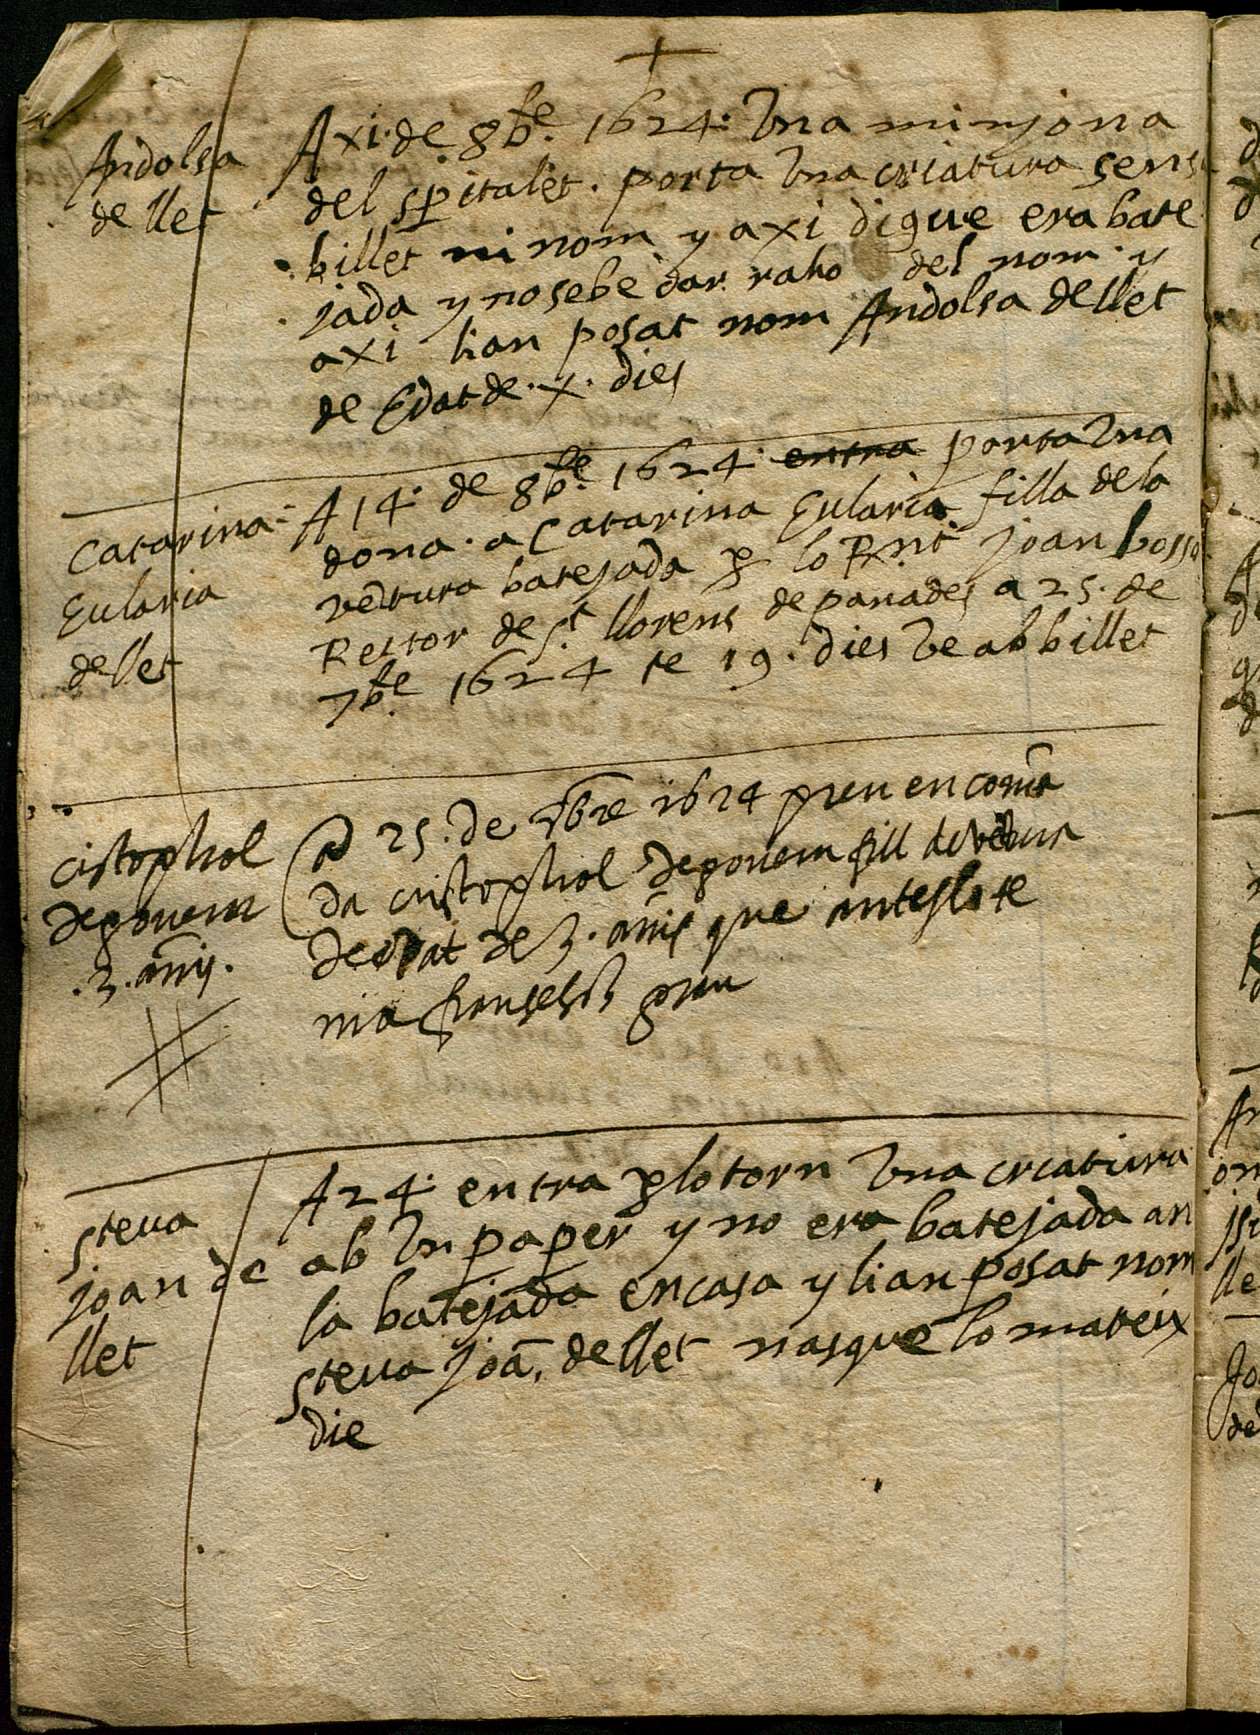 Andolsa
de llet
A xi. de 8bre. 1624: Una minyona
del spitalet. porta Una criatura sens
billet ni nom y axi digue era bate
jada y no sebe dar raho del nom y
axi lian posat nom Andolsa de llet
de Edat de. x. dies
Catarina
Eularia
de llet
A 14. de 8bre. 1624. entra porta Una
dona. a Catarina Eularia filla de la
ventura batejada p lo Rnt joan
Rettor de St llorens de panades a 25. de
7bre. 1624 te 19. dies Ve ab billet
cistophol
.3. anys.
A 25. de 1624 pren en coma
da cristophol fill de
de edat de 3. anys que antes lo te
nia preu
Steva
joan de
llet
A 24. entra p lo torn Una creatura
ab Un paper y no era batejada an
la batejada en casa y lian posat nom
Steva Joã. de llet nasque lo mateix
die